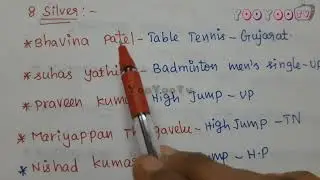 8 Silver:-
YOOYOOTV
* Bhavina Patel - Table Tennis - Gujarat
* suhas yathi - Badminton men's single - UP
* Praveen kuma - High Jump - UP
YooYooTv
* Mariyappan Th gavelu - High Jump - TN
* Nishad kumar Jump - H.P